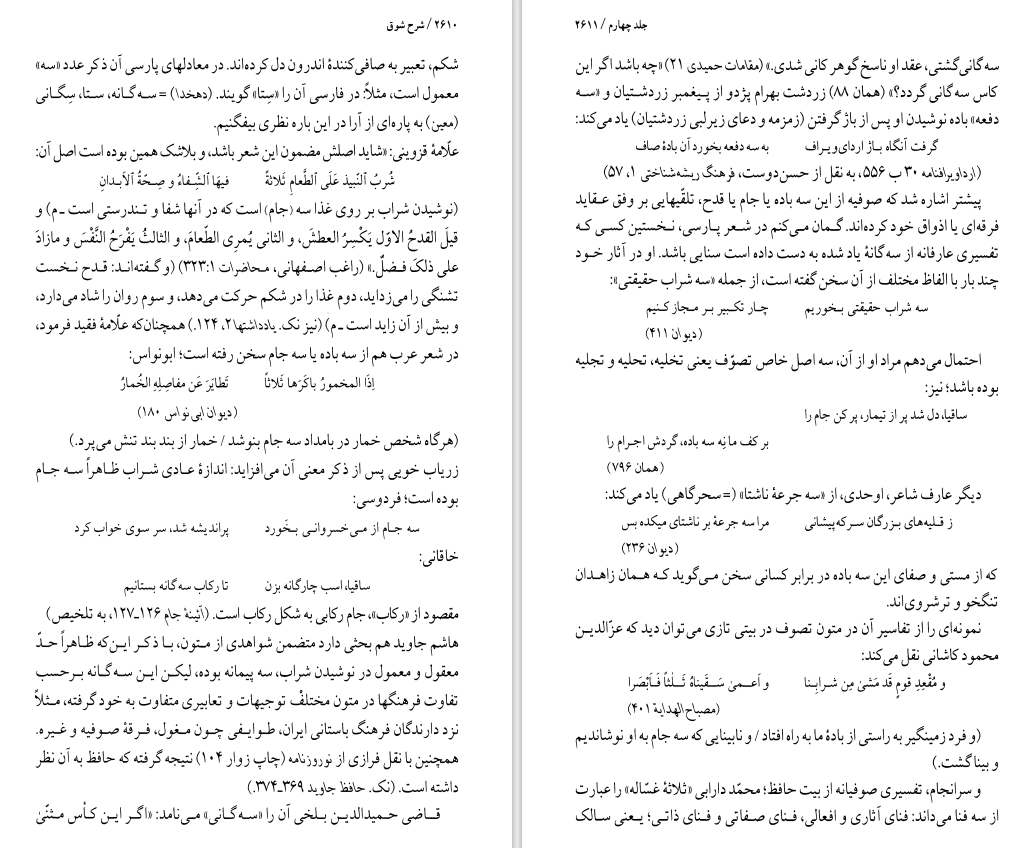 ۲۶۱۰ / شرح شوق
شکم، تعبیر به صافی‌کنندهٔ اندرون دل کرده‌اند. در معادلهای پارسی آن ذکر عدد «سه»
معمول است، مثلاً: در فارسی آن را «سِتا» گویند. (دهخدا) = سه‌گانه، ستا، سِگانی
(معین) به پاره‌ای از آرا در این باره نظری بیفگنیم.
علّامهٔ قزوینی: «شاید اصلش مضمون این شعر باشد، و بلاشک همین بوده است اصل آن:
شُربُ النَّبیذ عَلَی الطَّعامِ ثَلاثَةً فیهَا الشِّفاءُ وَ صِحَّةُ الاَبدانِ
(نوشیدن شراب بر روی غذا سه (جام) است که در آنها شفا و تندرستی است ـ م) و
قیلَ القدحُ الاوّل یَکْسِرُ العطشَ، و الثانی یُمرِی الطّعامَ، و الثالثُ یَفْرَحُ النَّفْسَ و مازادَ
علی ذلکَ فضلٌ.» (راغب اصفهانی، محاضرات ۳۲۳:۱) (و گفته‌اند: قدح نخست
تشنگی را می‌زداید، دوم غذا را در شکم حرکت می‌دهد، و سوم روان را شاد می‌دارد،
و بیش از آن زاید است ـ م) (نیز نک. یادداشتها ۲، ۱۲۴.) همچنان‌که علّامهٔ فقید فرمود،
در شعر عرب هم از سه باده یا سه جام سخن رفته است؛ ابونواس:
اِذَا المخمورُ باکَرَها ثَلاثاً تَطایَرَ عَن مفاصِلِهِ الخُمارُ
(دیوان ابی نواس ۱۸۰)
(هرگاه شخص خمار در بامداد سه جام بنوشد / خمار از بند بند تنش می‌پرد.)
زریاب خویی پس از ذکر معنی آن می‌افزاید: اندازهٔ عادی شراب ظاهراً سه جام
بوده است؛ فردوسی:
سه جام از می خسروانی بخَورد پراندیشه شد، سر سوی خواب کرد
خاقانی:
ساقیا، اسب چارگانه بزن تا رکاب سه‌گانه بستانیم
مقصود از «رکاب»، جام رکابی به شکل رکاب است. (آئینهٔ جام ۱۲۶ـ۱۲۷، به تلخیص)
هاشم جاوید هم بحثی دارد متضمن شواهدی از متون، با ذکر این‌که ظاهراً حدّ
معقول و معمول در نوشیدن شراب، سه پیمانه بوده، لیکن این سه‌گانه برحسب
تفاوت فرهنگها در متون مختلفْ توجیهات و تعابیری متفاوت به خود گرفته، مثلاً
نزد دارندگان فرهنگ باستانی ایران، طوایفی چون مغول، فرقهٔ صوفیه و غیره.
همچنین با نقل فرازی از نوروزنامه (چاپ زوار ۱۰۴) نتیجه گرفته که حافظ به آن نظر
داشته است. (نک. حافظ جاوید ۳۶۹ـ۳۷۴.)
قاضی حمیدالدین بلخی آن را «سه‌گانی» می‌نامد: «اگر این کأس مثنّیٰ
جلد چهارم / ۲۶۱۱
سه‌گانی‌گشتی، عقد او ناسخ گوهر کانی شدی.» (مقامات حمیدی ۲۱) «چه باشد اگر این
کاس سه‌گانی گردد؟» (همان ۸۸) زردشت بهرام پژدو از پیغمبر زردشتیان و «سه
دفعه» باده نوشیدن او پس از باژ گرفتن (زمزمه و دعای زیرلبی زردشتیان) یاد می‌کند:
گرفت آنگاه باژ اردای‌ویراف به سه دفعه بخورد آن بادهٔ صاف
(ارداویرافنامه ۳۰ ب ۵۵۶، به نقل از حسن‌دوست، فرهنگ ریشه‌شناختی ۱، ۵۷)
پیشتر اشاره شد که صوفیه از این سه باده یا جام یا قدح، تلقّیهایی بر وفق عقاید
فرقه‌ای یا اذواق خود کرده‌اند. گمان می‌کنم در شعر پارسی، نخستین کسی که
تفسیری عارفانه از سه‌گانهٔ یاد شده به دست داده است سنایی باشد. او در آثار خود
چند بار با الفاظ مختلف از آن سخن گفته است، از جمله «سه شراب حقیقتی»:
سه شراب حقیقتی بخوریم چار تکبیر بر مجاز کنیم
(دیوان ۴۱۱)
احتمال می‌دهم مراد او از آن، سه اصل خاص تصوّف یعنی تخلیه، تحلیه و تجلیه
بوده باشد؛ نیز:
ساقیا، دل شد پر از تیمار، پر کن جام را
بر کف ما نِه سه باده، گردش اجرام را
(همان ۷۹۶)
دیگر عارف شاعر، اوحدی، از «سه جرعهٔ ناشتا» (= سحرگاهی) یاد می‌کند:
ز قلیه‌های بزرگان سرکه‌پیشانی مرا سه جرعهٔ بر ناشتای میکده بس
(دیوان ۲۳۶)
که از مستی و صفای این سه باده در برابر کسانی سخن می‌گوید که همان زاهدان
تنگخو و ترشروی‌اند.
نمونه‌ای را از تفاسیر آن در متون تصوف در بیتی تازی می‌توان دید که عزّالدین
محمود کاشانی نقل می‌کند:
و مُقْعِدِ قومٍ قَد مَشیٰ مِن شرابِنا و اَعمیٰ سَقَیناهُ ثَلٰثاً فَاَبْصَرا
(مصباح‌الهدایة ۴۰۱)
(و فرد زمینگیر به راستی از بادهٔ ما به راه افتاد / و نابینایی که سه جام به او نوشاندیم
و بینا گشت.)
و سرانجام، تفسیری صوفیانه از بیت حافظ؛ محمّد دارابی «ثلاثهٔ غسّاله» را عبارت
از سه فنا می‌داند: فنای آثاری و افعالی، فنای صفاتی و فنای ذاتی؛ یعنی سالک